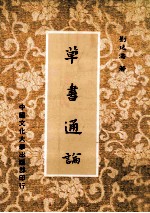 劉延濤 著
草書通論
中國文化大學出版部印行